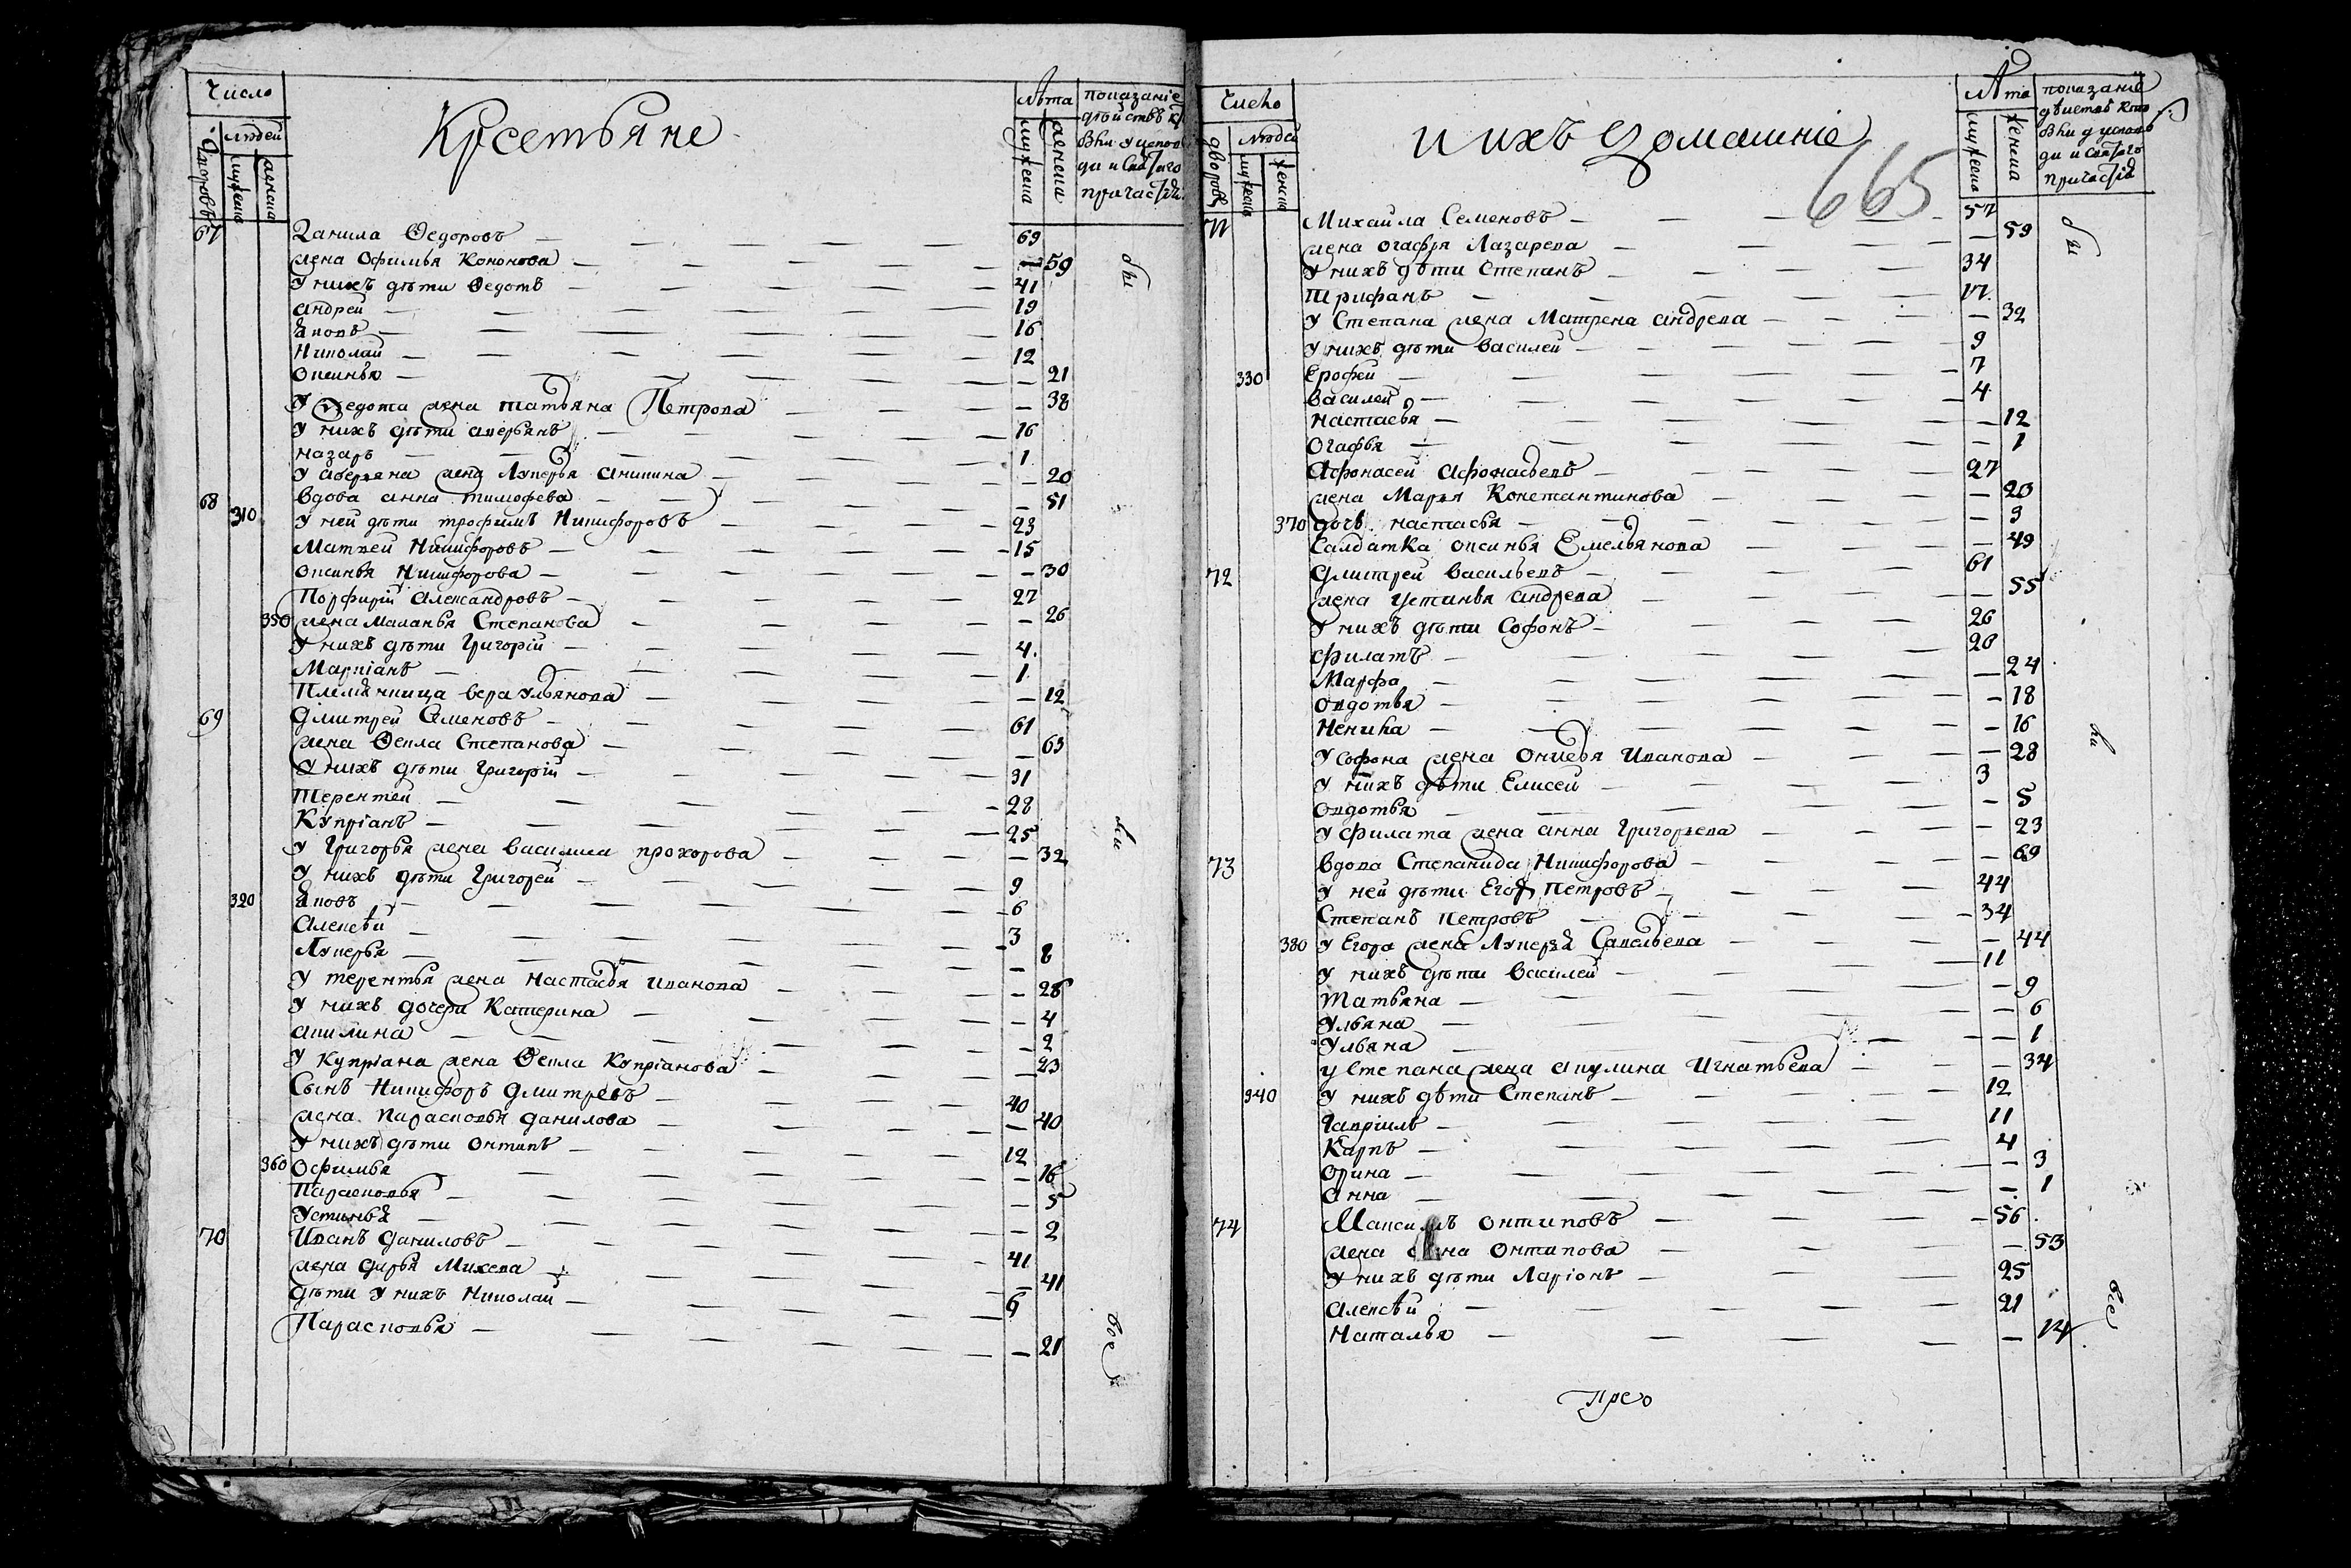 Число
людей
дворовъ
мужеска
женска
Крестьяне
лѣта
мужеска
женска
показаніе
67 Данила Ѳедоровъ — 69
жена Офимья Кононова — 59
У нихъ дѣти Ѳедотъ — 41
андрей — 19
Яковъ — 16
Николай — 12
Оксинья — 21
У Ѳедота жена татьяна Петрова — 38
У нихъ дѣти аверьянъ — 16
назаръ — 1
У аверьяна жена Лукерья аникина — 20
68 вдова анна тимофева — 51
310 У ней дѣти трофимъ Никифоровъ — 23
Матвей Никифоровъ — 15
Оксинья Никифорова — 30
Порфирій александровъ — 27
350 жена маланья Степанова — 26
У нихъ дѣти Григорій — 4
Маркіанъ — 1
Племянница вера ульянова — 12
69 Дмитрей Семеновъ — 61
жена Ѳекла Степанова — 63
У нихъ дѣти Григорій — 31
Терентей — 28
Купріанъ — 25
У Григорья жена василиса прохорова — 32
У нихъ дѣти Григорей — 9
320 Яковъ — 6
Алексѣй — 3
Лукерья — 8
У терентья жена настасья иванова — 28
У нихъ дочери Катерина — 4
акилина — 2
У купріана жена Ѳекла Купріанова — 23
Сынъ Никифоръ Дмитревъ — 40
жена парасковья данилова — 40
У нихъ дѣти онтипъ — 12
360 Офимья — 16
Парасковья — 5
Устинья — 2
70 Иванъ Даниловъ — 41
жена дарья Михева — 41
Дѣти у нихъ Николай — 9
Парасковья — 21
бы
вси
все
Число
людей
дворовъ
мужеска
женска
и ихъ домашніе
665
лѣта
мужеска
женска
показаніе
71 Михайла Семеновъ — 57
жена огафья Лазарева — 59
У нихъ дѣти Степанъ — 34
Трифанъ — 17
У Степана жена Матрена андрева — 32
У нихъ дѣти василей — 9
330 Ерофей — 7
василей — 4
настасья — 12
Огафья — 1
Афонасей афонасьевъ — 27
жена Марья Константинова — 23
370 дочь настасья — 3
Салдатка оксинья Емельянова — 49
72 Дмитрей васильевъ — 61
жена устинья андрева — 55
У нихъ дѣти Софонъ — 26
филатъ — 20
Марфа — 24
овдотья — 18
Ненила — 16
У Софона жена онисья Иванова — 28
У нихъ дѣти Елисей — 3
Овдотья — 5
У филата жена анна Григорьева — 23
73 вдова Степанида Никифорова — 69
У ней дѣти Егоръ петровъ — 44
Степанъ петровъ — 34
380 У Егора жена Лукерья Савельева — 44
У нихъ дѣти василей — 11
Татьяна — 9
Ульяна — 6
Ульяна — 1
у Степана жена акулина Игнатьева — 34
340 У нихъ дѣти Степанъ — 12
Гавріилъ — 11
Карпъ — 4
Орина — 3
Анна — 1
74 Максимъ онтиповъ — 56
жена онтипова — 53
У нихъ дѣти Ларіонъ — 25
Алексѣй — 21
Наталья — 14
бы
все